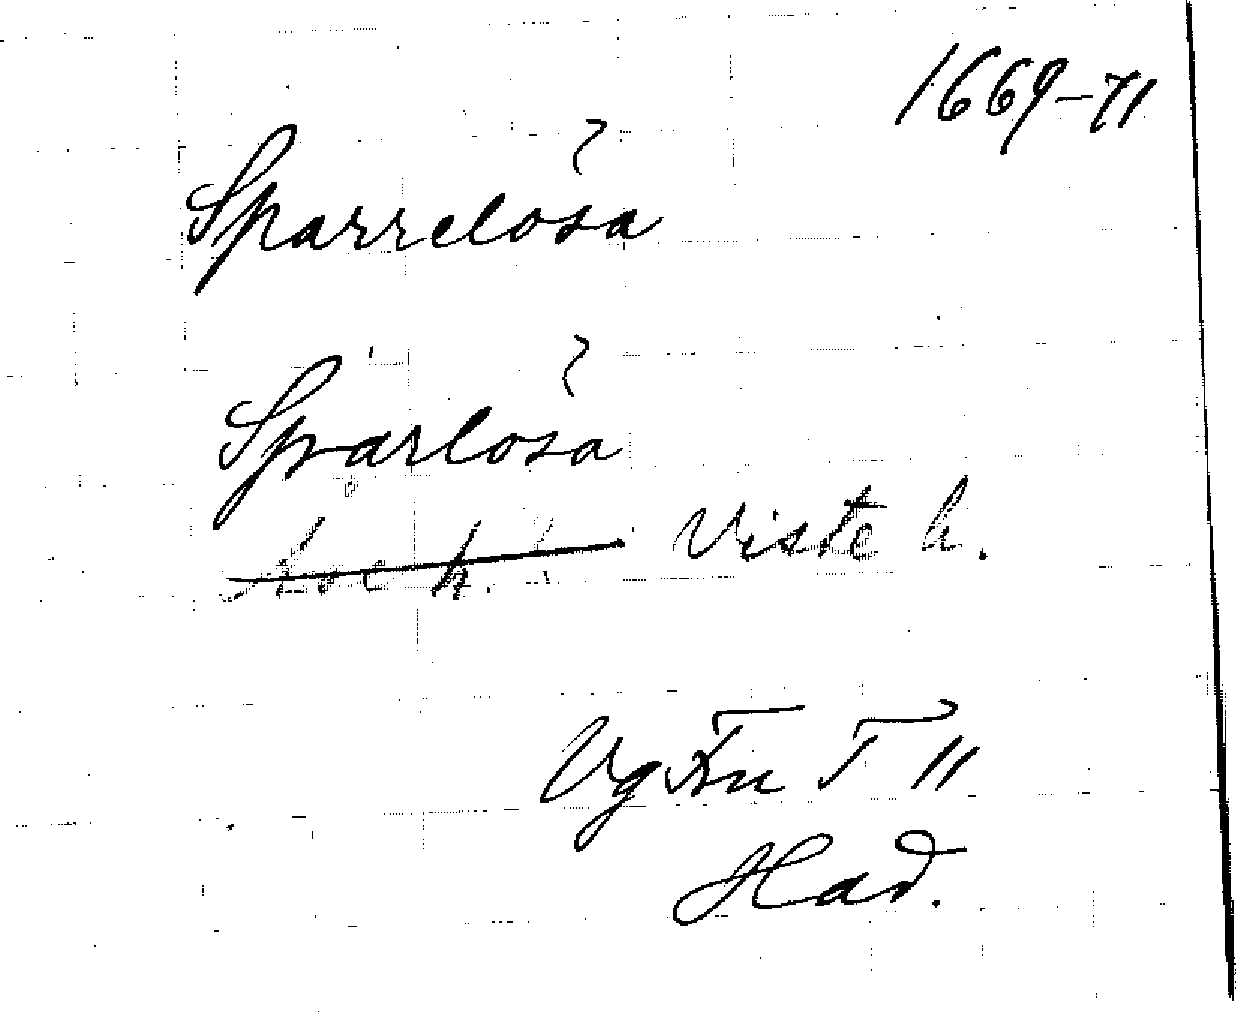 1669-71
Sparrelösa
Sparlösa
Viste h.
Vg Fnr T 11
Had.